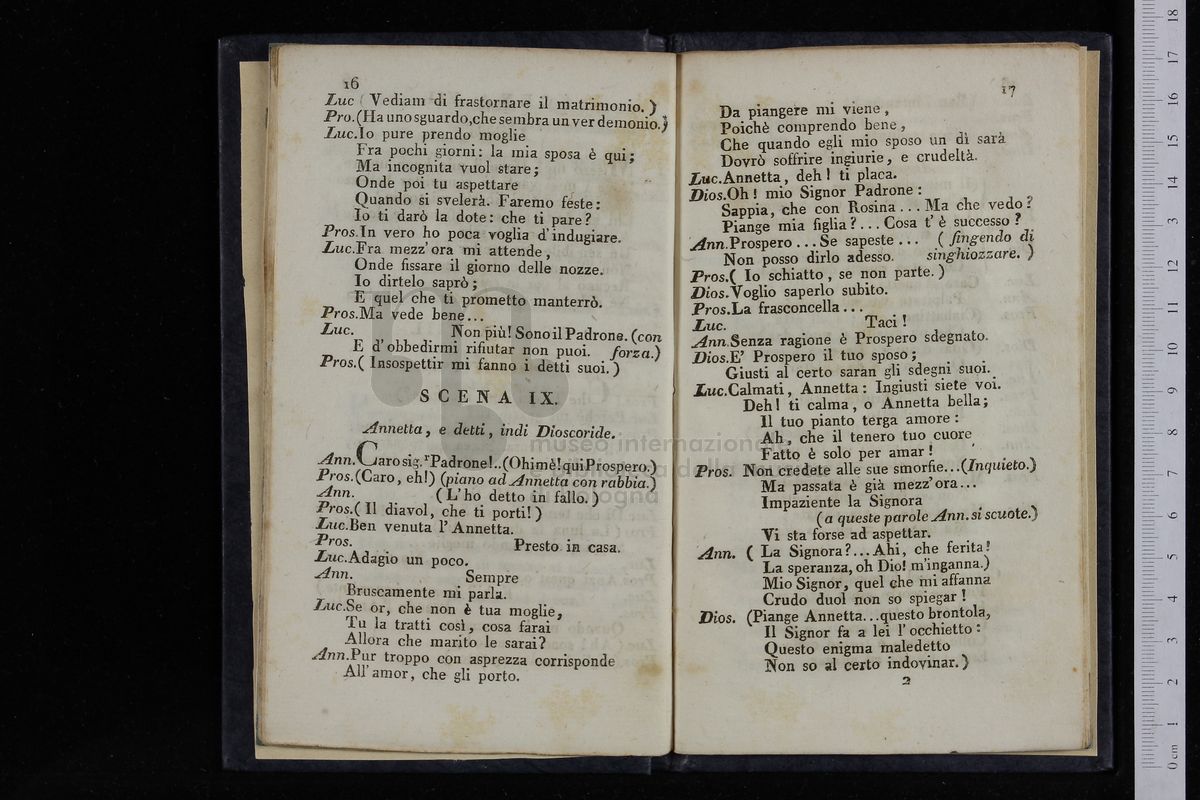 16
Luc ( Vediam di frastornare il matrimonio. )
Pro.(Ha uno sguardo, che sembra un ver demonio.)
Luc.Io pure prendo moglie
Fra pochi giorni: la mia sposa è qui;
Ma incognita vuol stare;
Onde poi tu aspettare
Quando si svelerà. Faremo feste:
Io ti darò la dote: che ti pare?
Pros.In vero ho poca voglia d'indugiare.
Luc.Fra mezz'ora mi attende,
Onde fissare il giorno delle nozze.
Io dirtelo saprò;
E quel che ti prometto manterrò.
Pros.Ma vede bene...
Luc. Non più! Sono il Padrone. (con
E d'obbedirmi rifiutar non puoi. forza.)
Pros.( Insospettir mi fanno i detti suoi. )
SCENA IX.
Annetta, e detti, indi Dioscoride.
Ann.Caro sig.r Padrone!..(Ohimè! qui Prospero.)
Pros.(Caro, eh!) (piano ad Annetta con rabbia.)
Ann. ( L'ho detto in fallo. )
Pros.( Il diavol, che ti porti! )
Luc.Ben venuta l'Annetta.
Pros. Presto in casa.
Luc.Adagio un poco.
Ann. Sempre
Bruscamente mi parla.
Luc.Se or, che non è tua moglie,
Tu la tratti così, cosa farai
Allora che marito le sarai?
Ann.Pur troppo con asprezza corrisponde
All'amor, che gli porto.
17
Da piangere mi viene,
Poichè comprendo bene,
Che quando egli mio sposo un dì sarà
Dovrò soffrire ingiurie, e crudeltà.
Luc.Annetta, deh! ti placa.
Dios.Oh! mio Signor Padrone:
Sappia, che con Rosina... Ma che vedo?
Piange mia figlia?... Cosa t'è successo?
Ann.Prospero... Se sapeste... ( fingendo di
Non posso dirlo adesso. singhiozzare. )
Pros.( Io schiatto, se non parte. )
Dios.Voglio saperlo subito.
Pros.La frasconcella...
Luc. Taci!
Ann.Senza ragione è Prospero sdegnato.
Dios.E' Prospero il tuo sposo;
Giusti al certo saran gli sdegni suoi.
Luc.Calmati, Annetta: Ingiusti siete voi.
Deh! ti calma, o Annetta bella;
Il tuo pianto terga amore:
Ah, che il tenero tuo cuore
Fatto è solo per amar!
Pros. Non credete alle sue smorfie...(Inquieto.)
Ma passata è già mezz'ora...
Impaziente la Signora
(a queste parole Ann. si scuote.)
Vi sta forse ad aspettar.
Ann. ( La Signora?... Ahi, che ferita!
La speranza, oh Dio! m'inganna.)
Mio Signor, quel che mi affanna
Crudo duol non so spiegar!
Dios. (Piange Annetta...questo brontola,
Il Signor fa a lei l'occhietto:
Questo enigma maledetto
Non so al certo indovinar.)
2
museo internazionale
0 cm 1 2 3 4 5 6 7 8 9 10 11 12 13 14 15 16 17 18